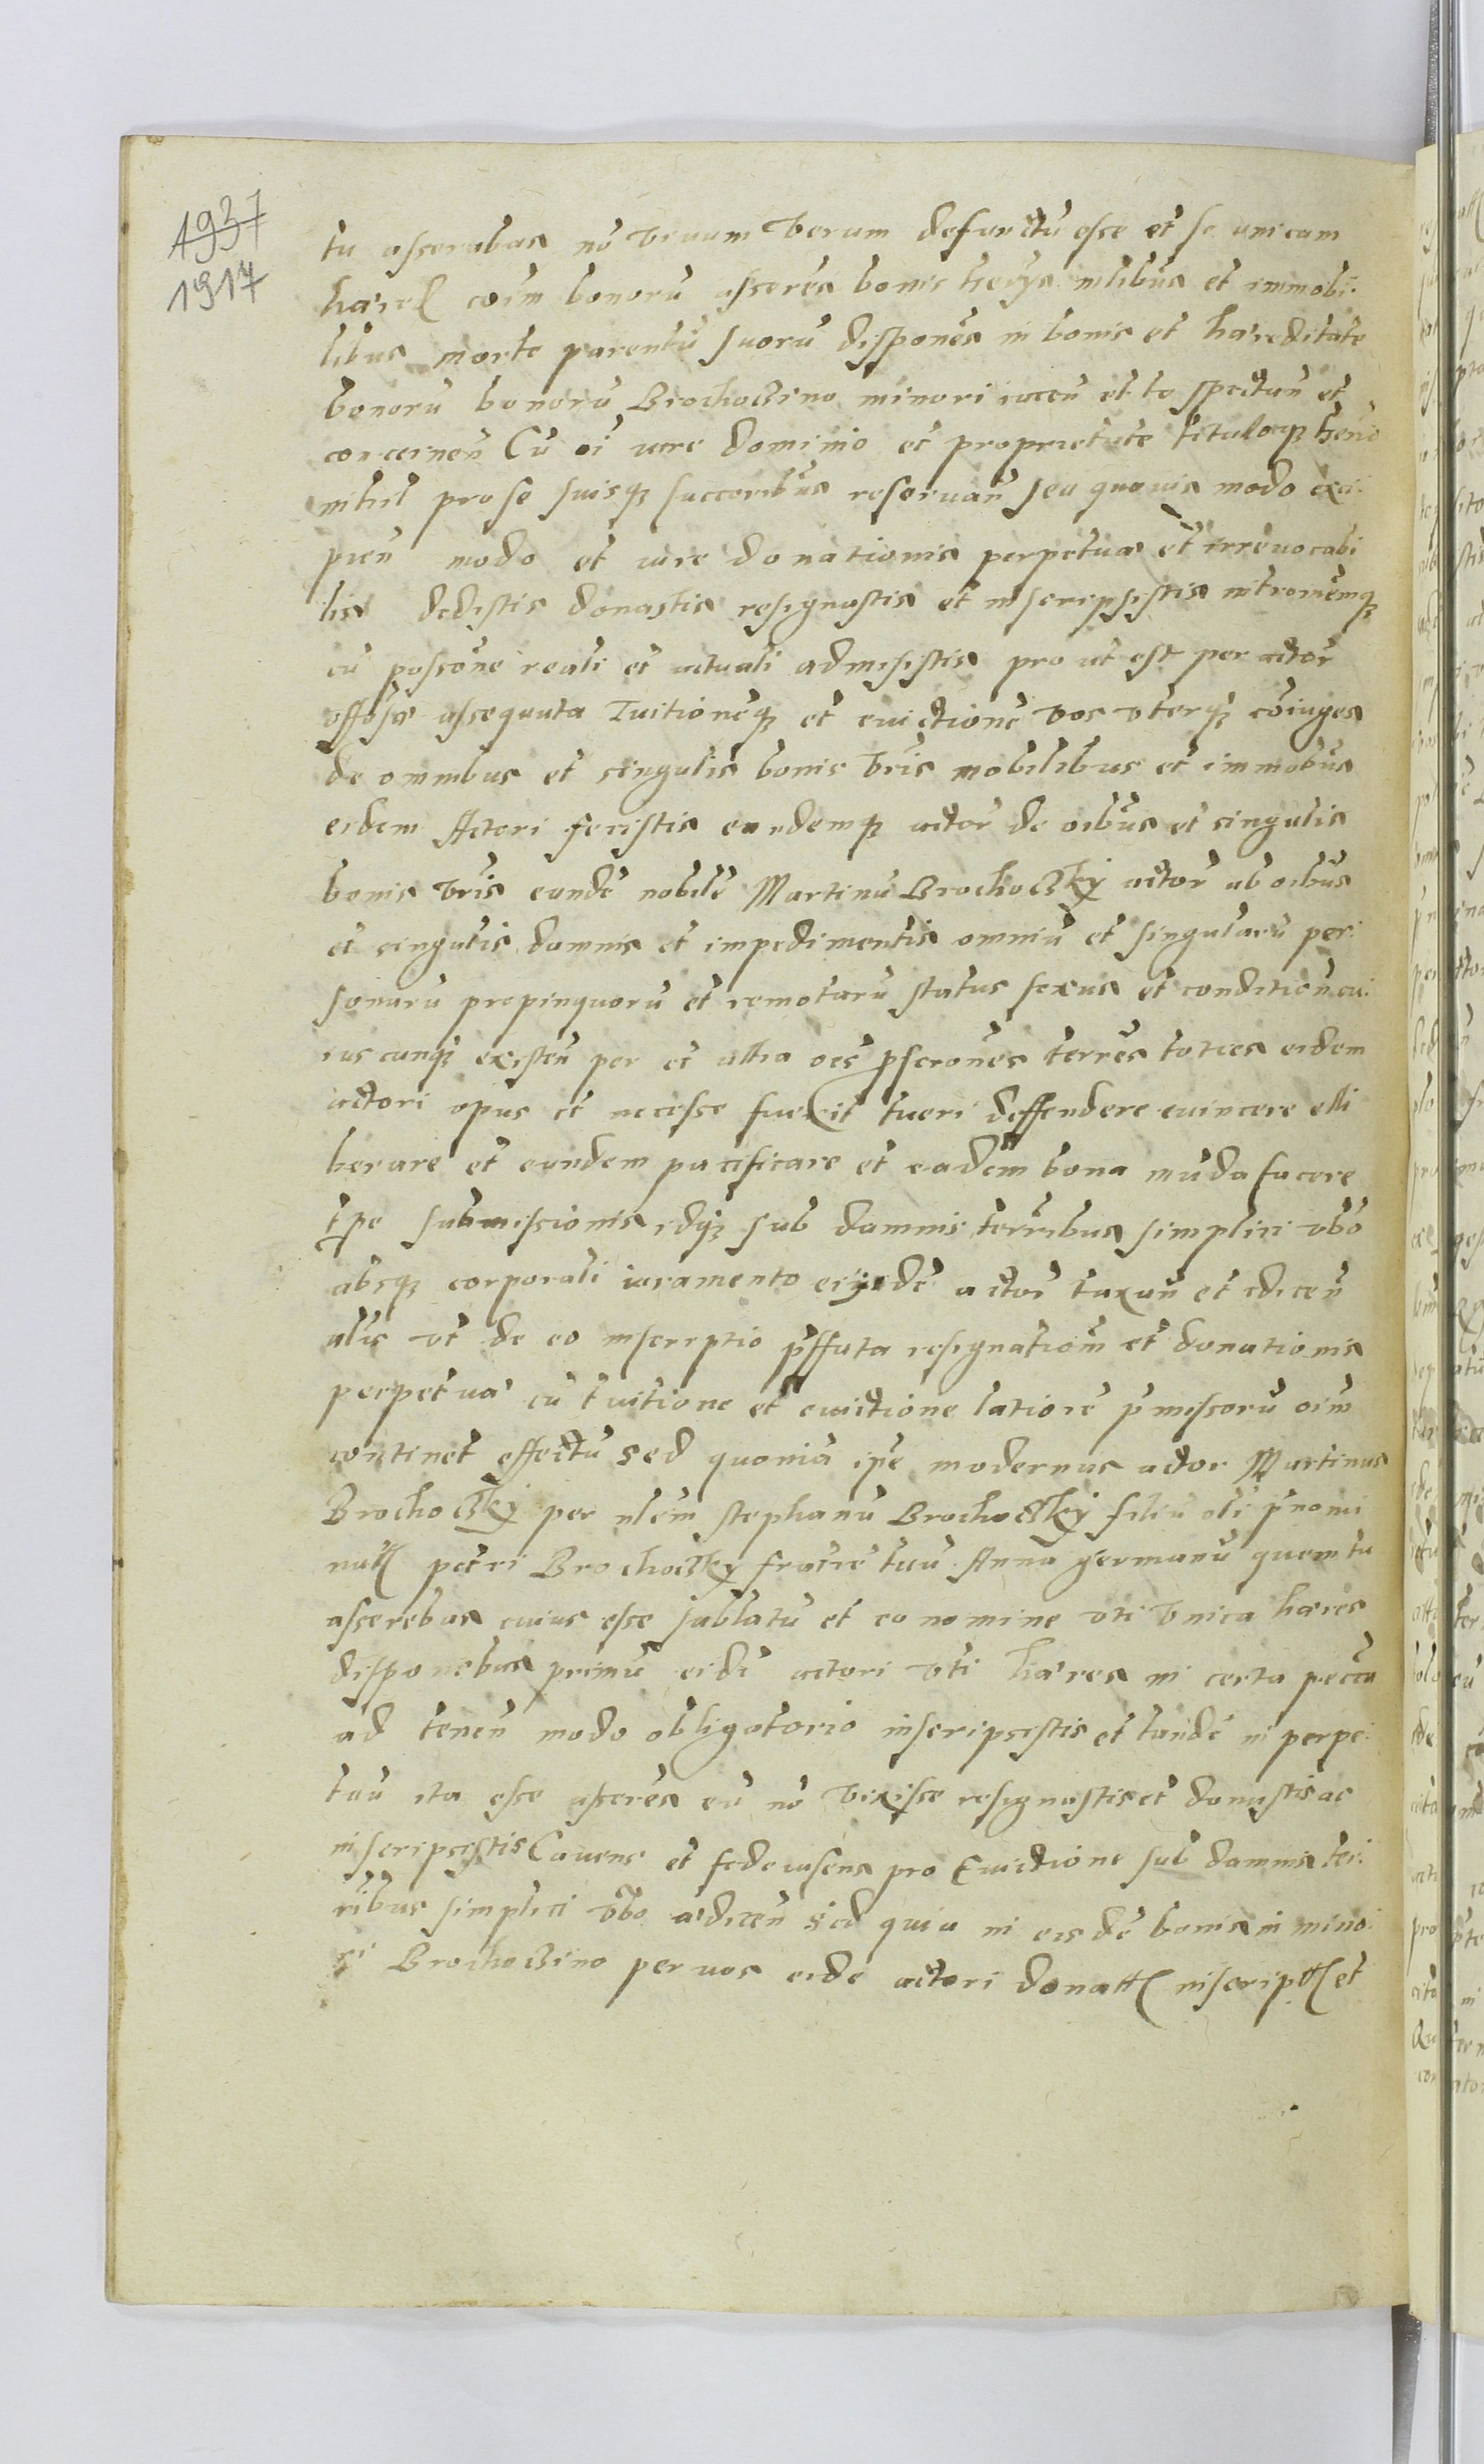 1937
1917
tu asserebas nō vivum verum defunctū esse et se unicam
hæred oīm bonorū asserēs bonis hrījs mlibus et immobi-
libus morte parentū suorū disponēs in bonis et hæreditate
bonorū bonorū Brochoczino minori iaceñ et te spectañ et
concerneñ Cū oī iure dominio et proprietate tituloq₃ hēnd
nihil pro se suisq₃ succōribus reservañ seu quovis modo exci-
pieñ modo et iure donationis perpetuæ et irrevocabi
lis dedistis donastis resignastis et inscripsistis intromēmq₃
cū possōne reali et actuali admisistis pro ut est per actor
assequuta Tuitionēq₃ et evictionē vos uterq₃ cōiuges
de omnibus et singulis bonis vrīs mobilibus et immobus
eidem Actori fecistis eundemq₃ actor̄ de oibus et singulis
bonis vrīs eundē nobilē Martinū Brochoczky actor̄ ab oibus
et singulis damnis et impedimentis omniū et singularū per-
sonarū propinquorū et remotarū status sexus et conditioñ cu-
iuscunq₃ existeñ per et ultra oēs pscrōnes terrēs toties eidem
actori opus et necesse fuerit tueri deffendere evincere elli
berare et eundem pacificare et eadem bona mūda facere
tpe submissionis idq₃ sub damnis terribus simplici vbo
absq₃ corporali iuramento eiusdē actor̄ taxañ et ediceñ
alis ut de eo inscriptio p̄ffata resignatiom̄ et donationis
perpetuæ cū tuitione et evictione latiorē p̄missorū oim̄
continet effectū sed quoniā ipē modernus actor Martinus
Brochoczky per nlēm stephanū Brochoczky filiū oli p̄nomi
natt petri Brochoczky fratrē tuū Anna germanū quem tu
asserebas cuius esse sublatū et eo nomine uti unica hæres
disponebas primū eidē actori uti hæres in certa pecca
ad teneñ modo obligatorio inscripsistis et tandē in perpe-
tuū ita esse asserēs eū nō vixisse resignastis et donastis ac
inscripsistis Cavens et fideiusens pro Evictione sub damnis ter-
ribus simplici vbo ædiceñ sed quia in eisdē bonis in mino-
ri Brochoczino per vos eidē actori donatt inscriptt et